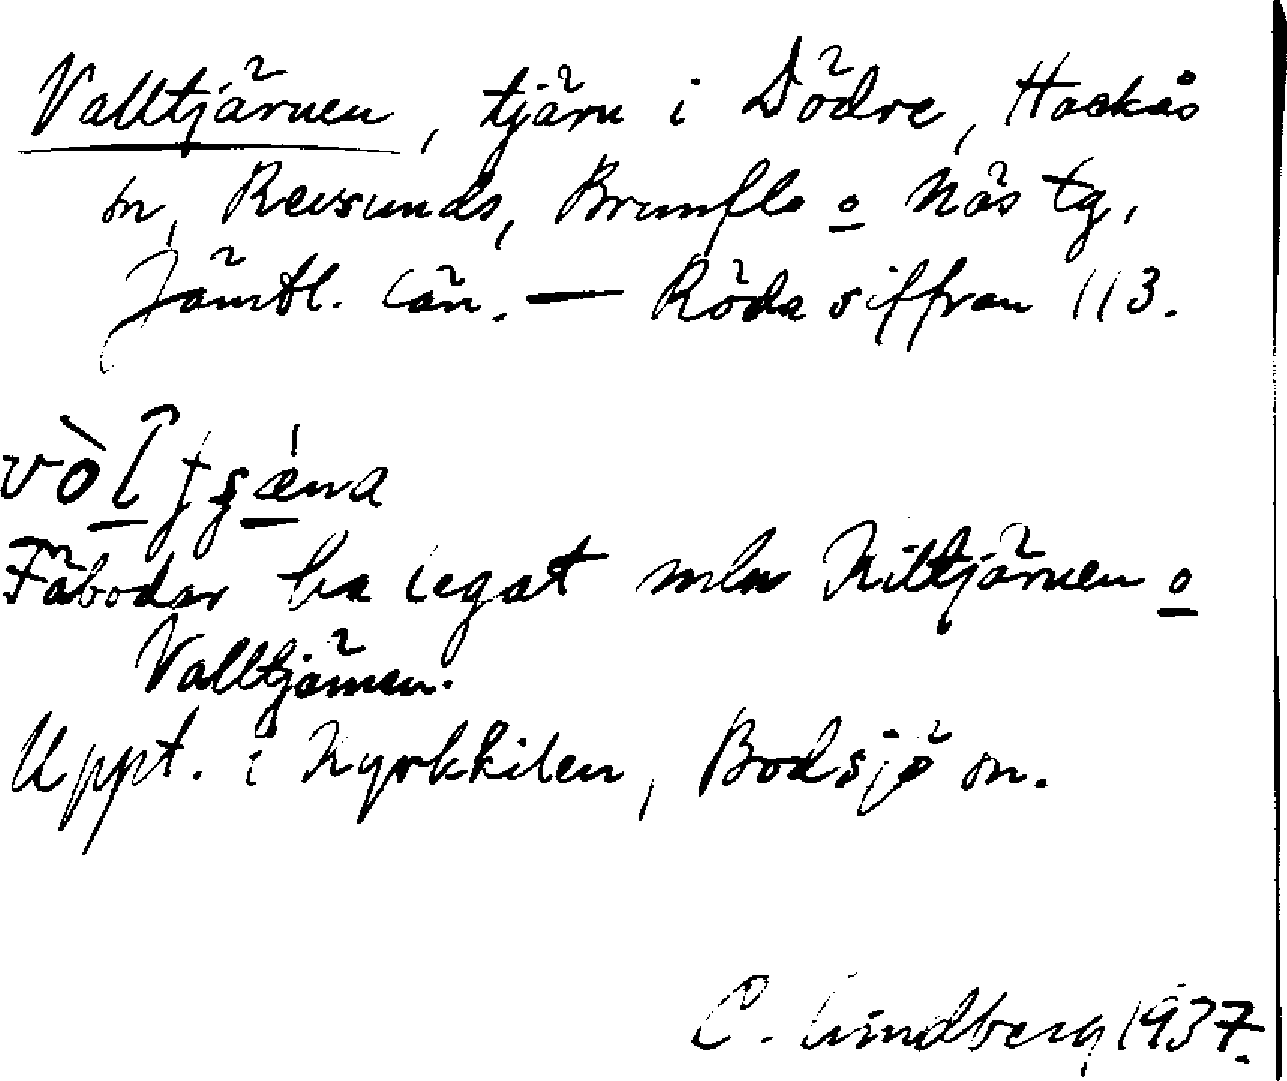 Valltjärnen, tjärn i Dödre, Hackås
sn, Revsunds, Brunflo o Näs tg,
Jämtl. län. — Röda siffran 113.
Fäbodar ha legat mlm Kiltjärnen o
Valltjärnen.
Uppt. i Kyrkkilen, Bodsjö sn.
C. Lindberg 1937.